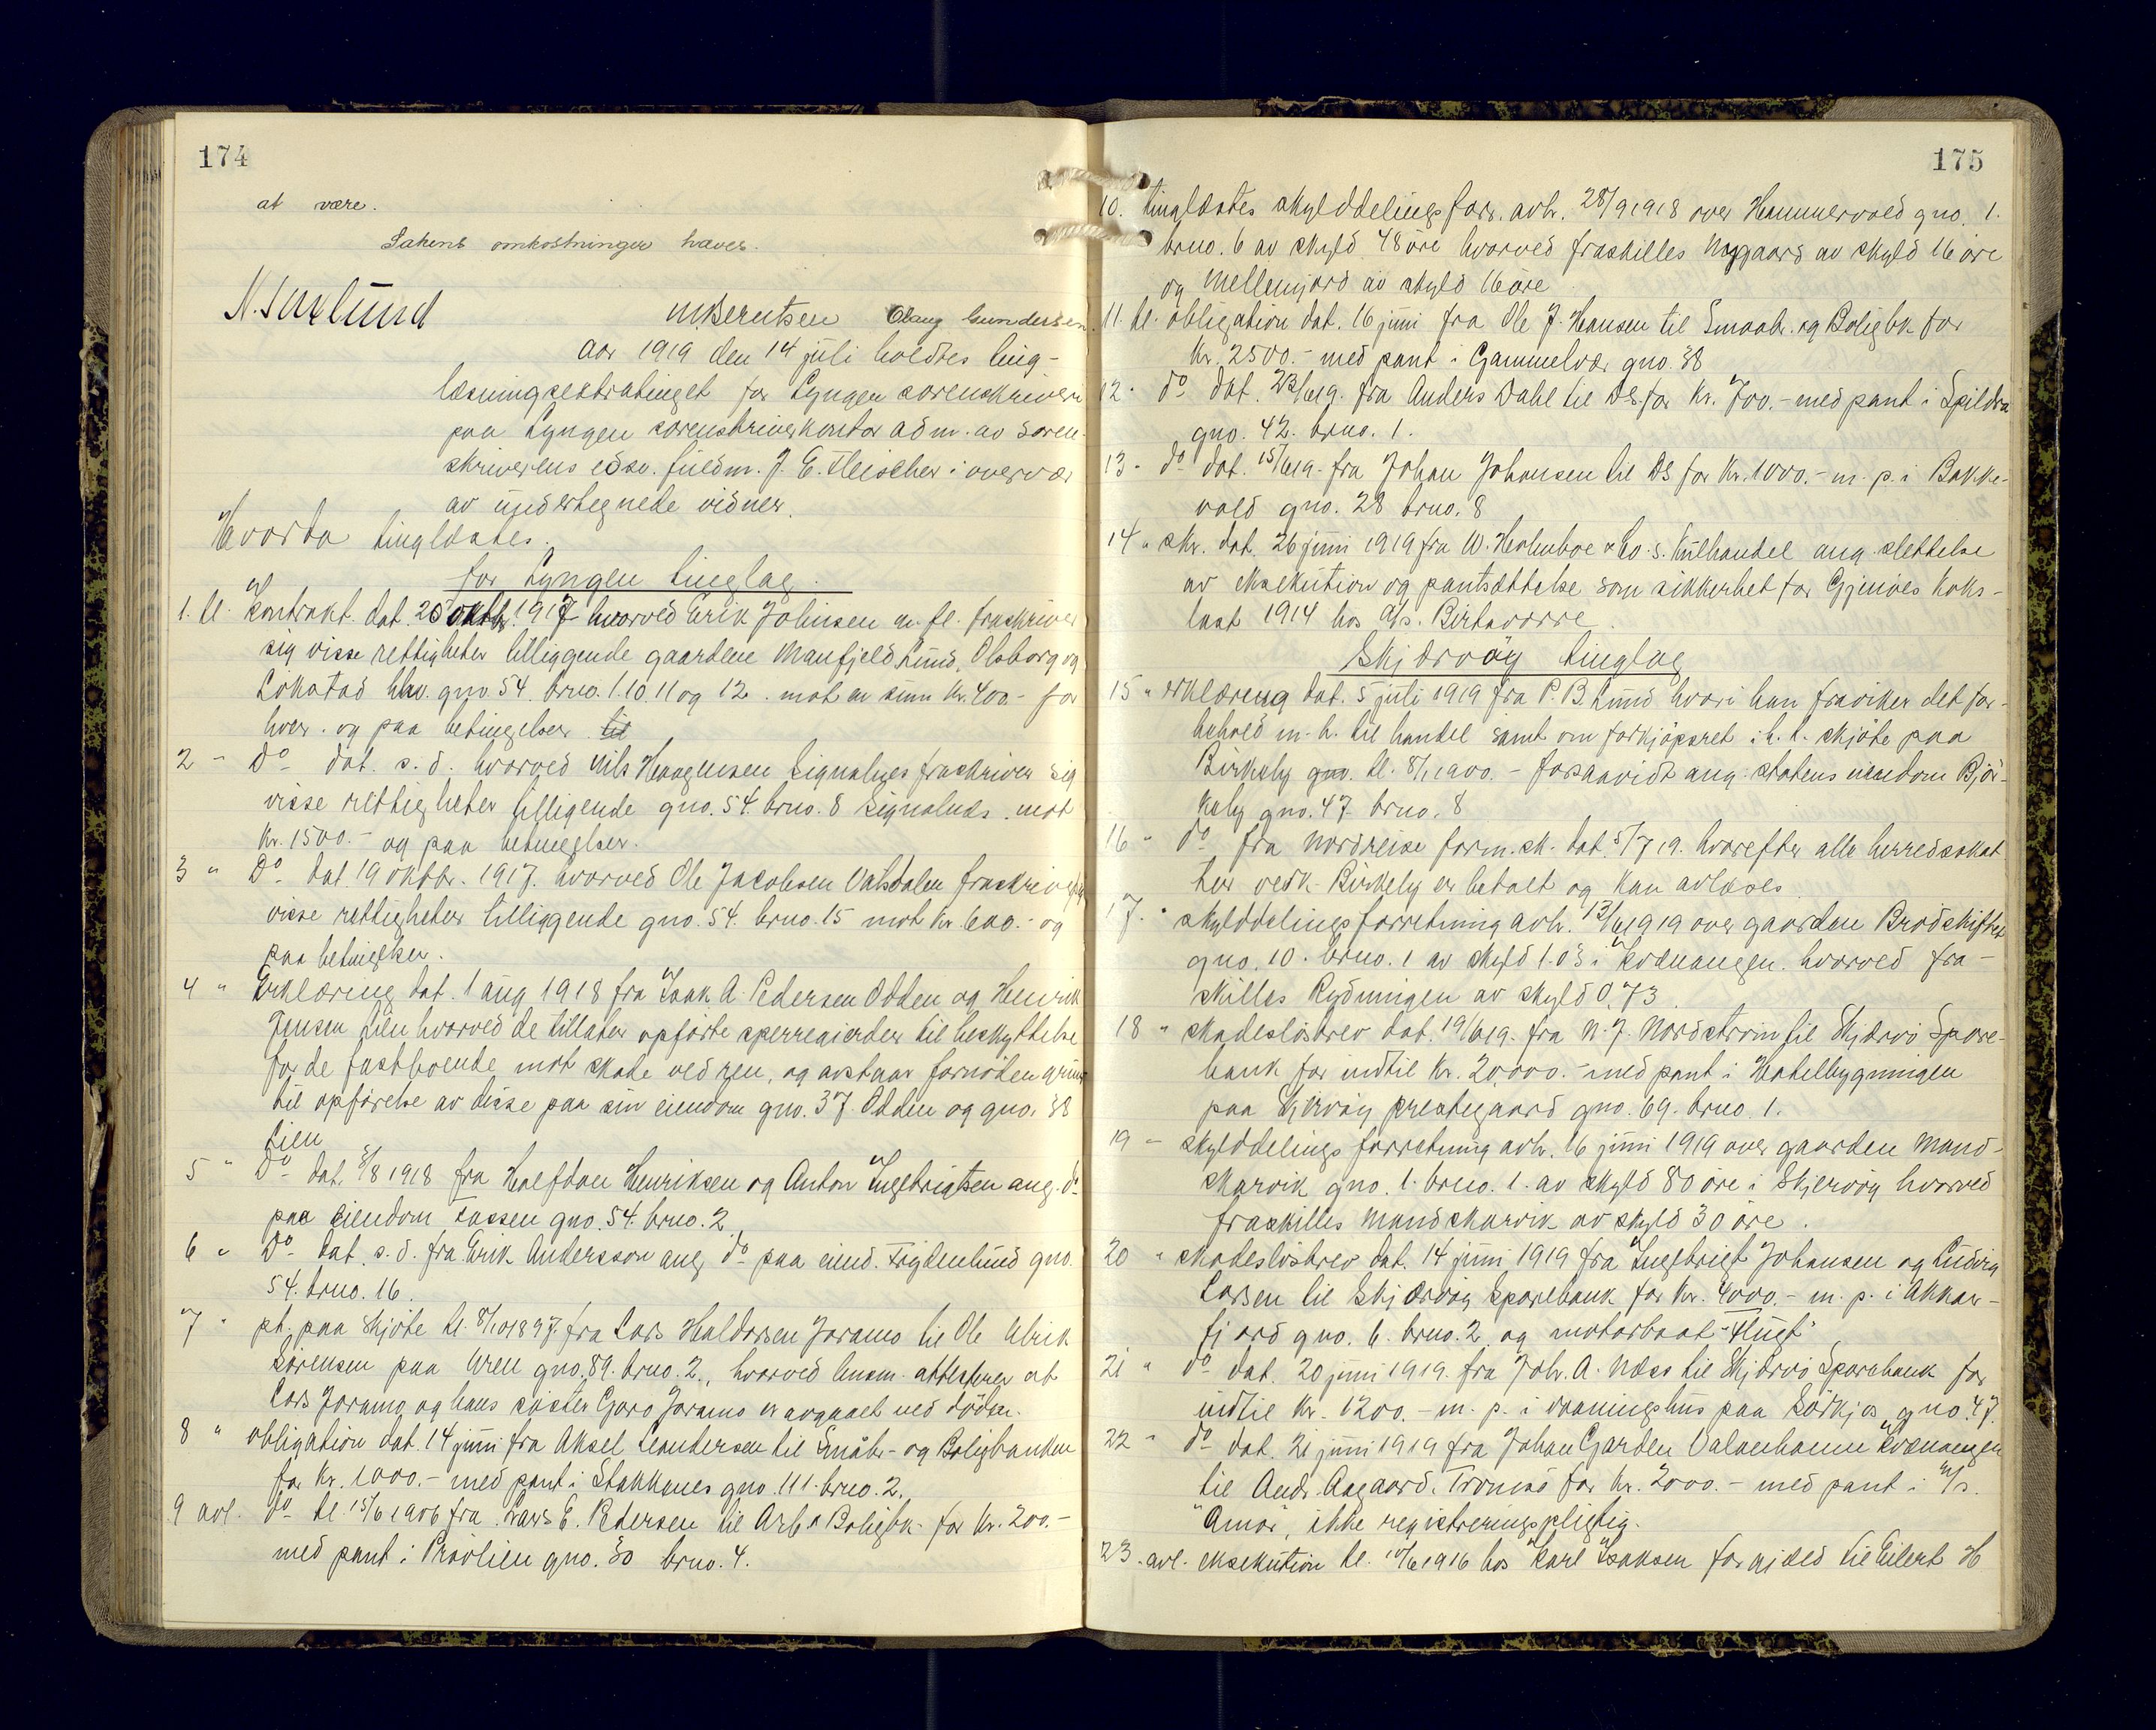 174
at være.
Sakens omkostninger hæves.
N. Saxlund
M Berntsen Olaug Gundersen.
Aar 1919 den 14 juli holdtes ting-
læsningsextratinget for Lyngen sorenskriveri
paa Lyngen sorenskriverkontor adm. av soren-
skriverens edsv. fuldm. J. E. Fleischer i overvær
av undertegnede vidner.
Hvorda tinglæstes.
for Lyngen tinglag.
1. tl. Kontrakt. dat. 20 oktbr. 1917 hvorved Erik Johnsen m. fl. fraskriver
sig visse rettigheter tilliggende gaardene Manfjeld, Lund, Olsborg og
Løkstad hhv. gno. 54. brno. 1. 10. 11 og 12. mot en sum Kr. 400.- for
hver. og paa betingelser
2 - Do dat. s. d. hvorved Nils Haagensen Signalnes fraskriver sig
visse rettigheter tilligende gno. 54. brno. 8 Signalnds. mot
Kr. 1500.- og paa betingelser.
3 " Do dat. 19 oktbr. 1917. hvorved Ole Jacobsen Oalsdalen fraskriver sig
visse rettigheter tilliggende gno. 54. brno. 15 mot Kr. 600.- og
paa betingelser.
4 " Erklæring dat. 1 aug 1918 fra Isak A. Pedersen Odden og Henrik
Jensen Lien hvorved de tillater opførte sperregjerder til beskyttelse
for de fastboende mot skade ved ren, og avstaar fornøden grund
til opførelse av disse paa sin eiendom gno. 37. Odden og gno. 38
Lien
5 " Do dat. 5/8 1918 fra Halfdan Henriksen og Anton Ingebrigtsen ang. do
paa eiendom Tassen gno. 54. brno. 2.
6 " Do dat. s. d. fra Erik Andersson ang. do paa eiend. Frydenlund gno.
54. brno. 16.
7 " pt. paa skjøte tl. 8/10 1897. fra Lars Haldorsen Joramo til Ole Ulrik
Sørensen paa Uren gno. 89. brno. 2., hvorved lensm. attesterer at
Lars Joramo og hans søster Guro Joramo er avgaaet ved døden.
8 " obligation dat. 14 juni fra Aksel Leandersen til Småbr.- og Boligbanken
for Kr. 1000.- med pant i Stakkenes gno. 111. brno. 2.
9 avl. do tl. 15/6 1906 fra Lars E. Pedersen til Arb. & Boligbk. for Kr. 200.-
med pant i Prøvlien gno. 30 brno. 4.
175
10. tinglæstes skylddelingsforr. avh. 28/9 1918 over Hammervold gno. 1.
brno. 6 av skyld 48 øre hvorved fraskilles Nygaard av skyld 16 øre
og Mellemjord av skyld 16 øre.
11. tl. obligation dat. 16 juni fra Ole J. Hansen til Smaabr. og Boligbk. for
Kr. 2500.- med pant i Gammelvær gno. 38
12 " do dat. 23/6 19. fra Anders Dahl til Ds. for Kr. 700.- med pant i Spildra
gno. 42. brno. 1.
13 - do dat. 15/6 19. fra Johan Johansen til Ds for Kr. 1000.- m. p. i Bakke-
vold gno. 28 brno. 8
14 " skr. dat. 26 juni 1919 fra W. Holmboe & Co.s. Kulhandel ang. slettelse
av eksekution og pantsættelse som sikkerhet for Gjenioes koks-
last 1914 hos A/s. Birtavarre.
Skjærvøy tinglag
15 " erklæring dat. 5 juli 1919 fra P. B. Lund hvori han fraviker det for-
behold m. h. til handel samt om forkjøpsret i h. t. skjøte paa
Birkely tl. 8/1 1900. - forsaavidt ang. statens eiendom Bjør-
kely gno. 47. brno. 8
16 " do fra Nordreisa form.sk. dat. 5/7 19. hvorefter alle herredsskat
ter vedk. Birkely er betalt og kan avlæses
17. " skylddelingsforretning avh. 13/6 1919 over gaarden Brødskiftet
gno. 10. brno. 1 av skyld 1.03 i Kvænangen. hvorved fra-
skilles Rydningen av skyld 0,73.
18 " skadesløsbrev dat. 19/6 19. fra N. J. Nordstrøm til Skjærvø Spare-
bank for indtil Kr. 20,000.- med pant i Hotelbygningen
paa Skjervøy prestegaard gno. 69. brno. 1.
19 - skylddelingsforretning avh. 16 juni 1919 over gaarden Mand-
skarvik gno. 1. brno. 1. av skyld 80 øre i Skjervøy hvorved
fraskilles Mandskarvik av skyld 30 øre.
20 " skadesløsbrev dat. 14 juni 1919 fra Ingebrigt Johansen og Ludvig
Larsen til Skjærvøy Sparebank for Kr. 4000.- m. p. i Akkar-
fjord gno. 6. brno. 2 og motorbaat "Flugt"
21 " do dat. 20 juni 1919. fra Joh. A. Næss til Skjærvø Sparebank for
indtil Kr. 1200.- m. p. i vaaningshus paa Sørkjos gno. 47.
22 " do dat. 21 juni 1919 fra Johan Garden Valanhamn Kvænangen
til Andr. Aagaard. Tromsø for Kr. 2000.- med pant i M/s.
"Amor", ikke registreringspligtig.
23. avl. eksekution tl. 10/6 1916 hos Karl Isaksen for gjæld til Eilert H